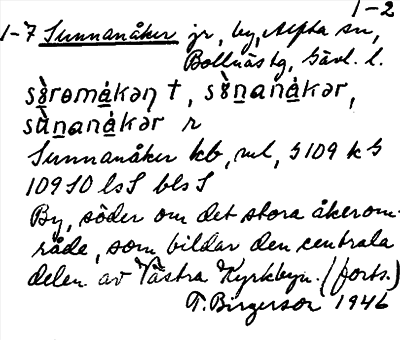 1-2
1-7 Sunnanåker jr, by, Alfta sn,
Bollnäs tg, Gävl. l.
Sunnanåker kb, ml, G109 k G
109 SO lsS blsS
By, söder om det stora åkerom-
råde, som bildar den centrala
delen av Västra Kyrkbyn. (forts.)
T. Birgerson 1946